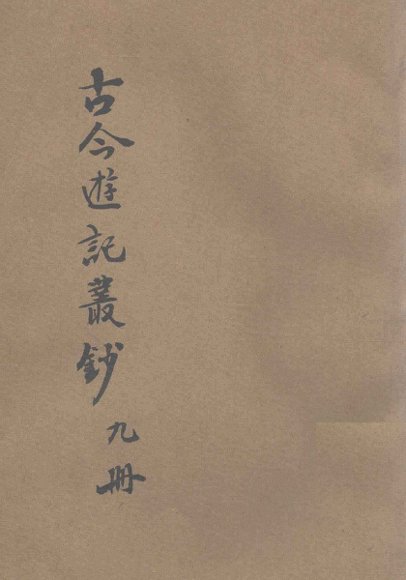 古今遊記叢鈔
九冊